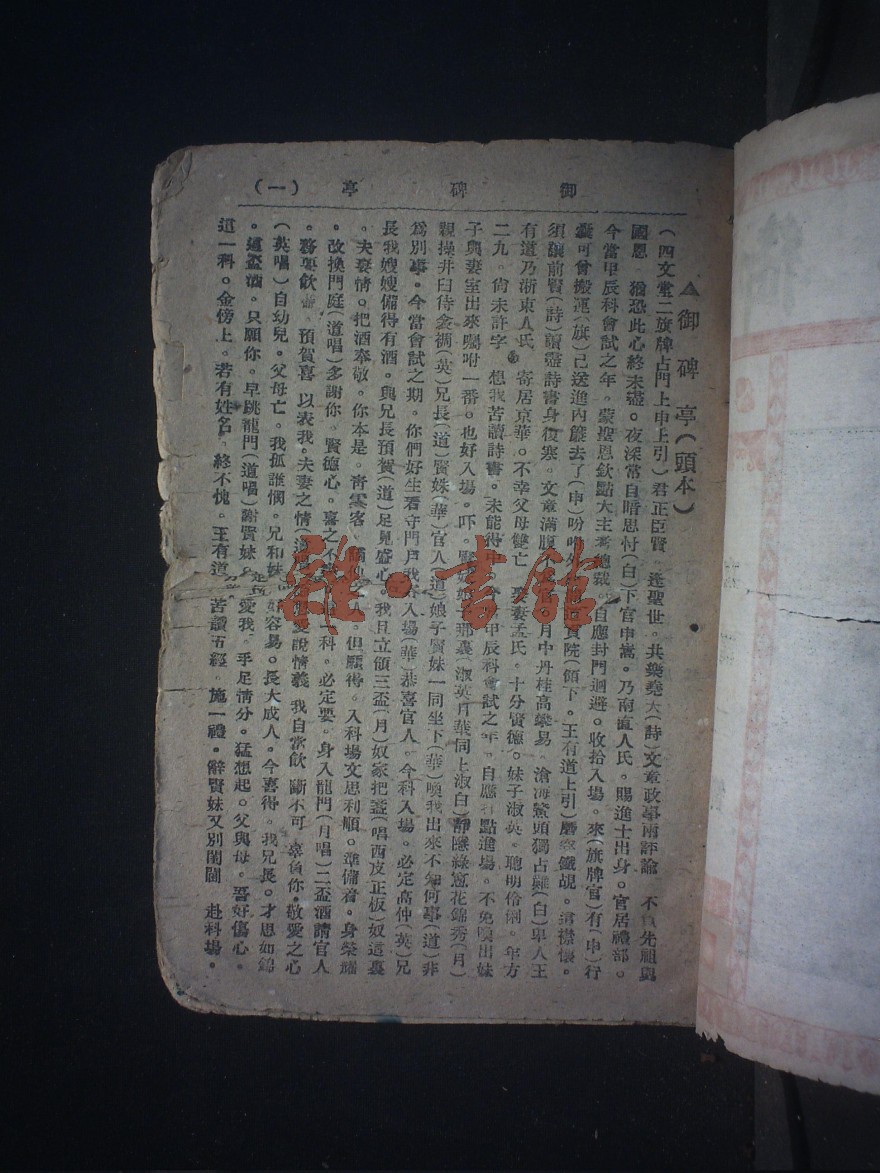 御碑亭（一）
▲御碑亭（頭本）
（四文堂二旗牌占門上申上引）君正臣賢 逢聖世。共樂堯天（詩）文章政事兩評論 不負先祖與
國恩。猶恐此心終未盡。夜深常自暗思忖（白）下官申嵩。乃南直人氏。賜進士出身。官居禮部。
今當甲辰科會試之年。蒙聖恩欽點大主考總裁。自應封門迴避。收拾入場。來（旗牌官）有（申）行
囊可曾搬運（旗）已送進內簾去了（申）吩咐外 貢院（領下。王有道上引）磨穿鐵硯。這襟懷。
須讓前賢（詩）讀盡詩書身復寒。文章滿腹不 月中丹桂高攀易。滄海鰲頭獨占難（白）卑人王
有道乃浙東人氏 寄居京華。不幸父母雙亡 娶妻孟氏。十分賢德。妹子淑英。聰明伶俐。年方
二九。尙未許字 想我苦讀詩書。未能得中 甲辰科會試之年。自應 點進場。不免喚出妹
子與妻室出來囑咐一番。也好入場。吓。賢妹娘子那裏（淑英月華同上淑白）靜隱綠窻花錦秀（月）
親操井臼侍衾裯（英）兄長（道）賢妹（華）官人（道）娘子賢妹一同坐下（華）喚我出來不知何事（道）非
爲別事。今當會試之期。你們好生看守門戶我 入場（華）恭喜官人。今科入場。必定高仲（英）兄
長我嫂嫂備得有酒。與兄長預賀（道）足見盛心 我且立領三盃（月）奴家把盞（唱西皮正板）奴這裏
。夫妻情。把酒奉敬。你本是。靑雲客。 但願得。入科場文思利順。準備着。身榮耀
。改換門庭（道唱）多謝你。賢德心。喜之不 一科。必定要。身入龍門（月唱）二盃酒請官人
。務要飲 預賀喜 以表我。夫妻之情（道 恩愛說情義 我自當飲 斷不可 辜負你。敬愛之心
（英唱）自幼兒。父母亡。我孤誰憫。兄和妹 好容易。長大成人。今喜得。我兄長。才思如錦
。這盃酒。只願你。早跳龍門（道唱）謝賢妹。 愛我。手足情分。猛想起。父與母。吾好傷心。
這一科。金傍上。若有姓名。終不愧。王有道 苦讀五經。施一禮。辭賢妹又別閨閫 赴科場。
雜·書館